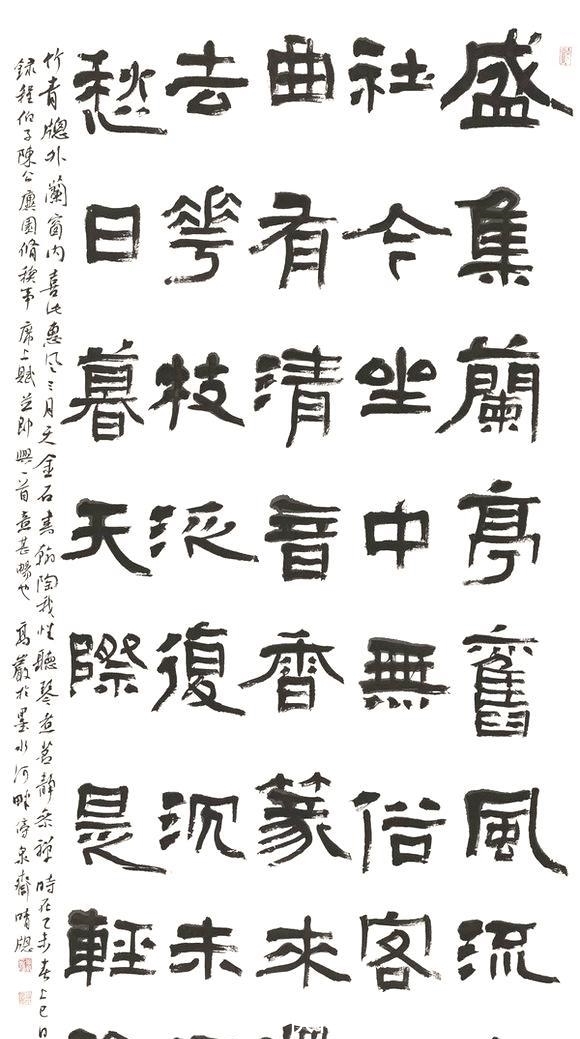 盛集蘭亭舊風流
社今坐中無俗客
曲有清音香篆來
去花枝泛復沉未
愁日暮天際是輕
竹青牕外蘭窗內喜此惠風三月天金石書翰陶我性聽琴煮茗靜參禪時在乙未春上巳日
錄程伯子陳公廙園脩禊事席上賦並即興一首意甚暢也 高巖於墨水河畔泉齋晴牕